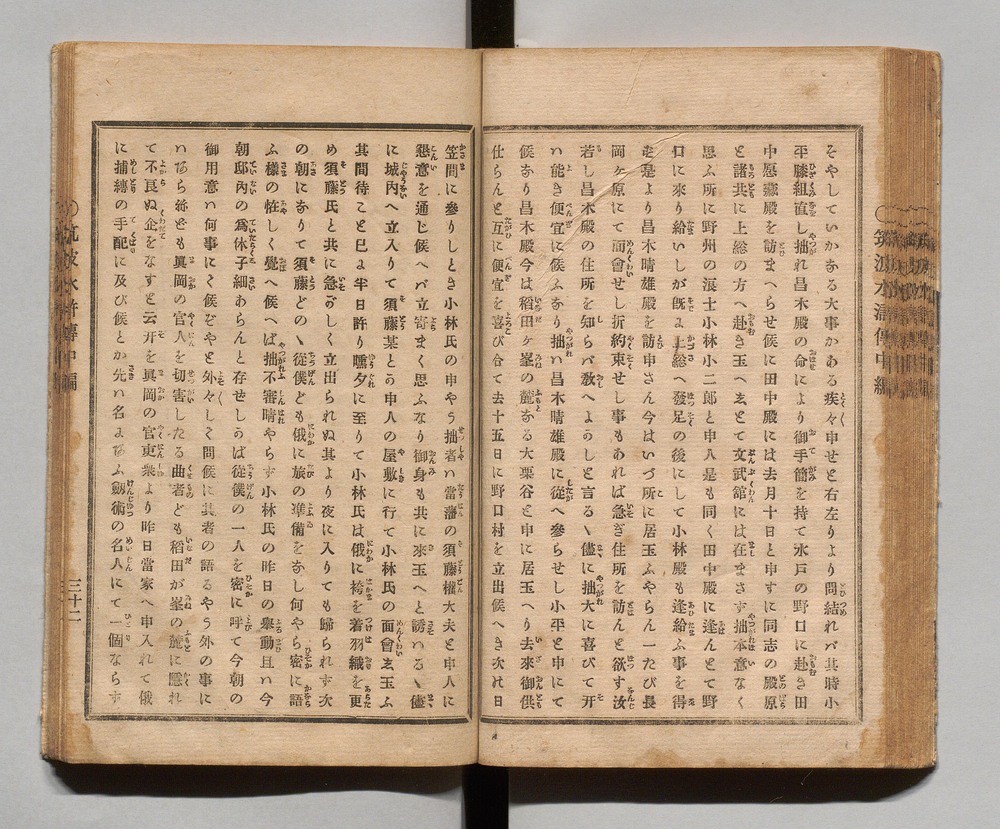 〇筑波水滸傳中編
そやしていかなる大事かある疾々申せと右左りより問結れバ其時小
平膝組直し拙れ昌木殿の命により御手簡を持て水戸の野口に赴き田
中愿藏殿を訪まへらせ候に田中殿には去月十日と申すに同志の殿原
と諸共に上総の方へ赴き玉へゑとて文武舘には在まさす拙本意なく
思ふ所に野州の浪士小林小二郎と申人是も同く田中殿に逢んとて野
口に來り給いしが既よ上総へ發足の後にして小林殿も逢給ふ事を得
是より昌木晴雄殿を訪申さん今はいづ所に居玉ふやらん一たび長
岡ヶ原にて面會せし折約束せし事もあれば急ぎ住所を訪んと欲す汝
若し昌木殿の住所を知らバ敎へよかしと言るゝ儘に拙大に喜びて夫
ハ能き便宜に候ふなり拙ハ昌木晴雄殿に從へ參らせし小平と申にて
候なり昌木殿今は稻田ヶ峯の麓なる大栗谷と申に居玉へり去來御供
仕らんと互に便宜を喜び合て去十五日に野口村を立出候へき次の日
笠間に參りしとき小林氏の申やう拙者ハ當藩の須藤權大夫と申人に
懇意を通じ候へバ立寄まく思ふなり御身も共に來玉へと誘ハるゝ儘
に城内へ立入りて須藤某とか申人の屋敷に行て小林氏の面會ゑ玉ふ
其間待こと已よ半日許り曛夕に至りて小林氏は俄に袴を着羽織を更
め須藤氏と共に急がしく立出られぬ其より夜に入りても歸られす次
の朝になりて須藤どのゝ從僕ども俄に旅の準備をなし何やら密に語
ふ樣の恠しく覺へ候へば拙不審晴やらす小林氏の昨日の擧動且ハ今
朝邸内の爲休子細あらんと存せしかば從僕の一人を密に呼て今朝の
御用意ハ何事にて候ぞやと外々しく問候に其者の語るやう外の事に
ハあらねども眞岡の官人を切害したる曲者ども稻田が峯の麓に隱れ
て不良ぬ企をなすと云を眞岡の官吏衆より昨日當家へ申入れて俄
に捕縛の手配に及び候とか先ハ名まあふ劔術の名人にて一個ならす
〇筑波水滸傳中編
三十二